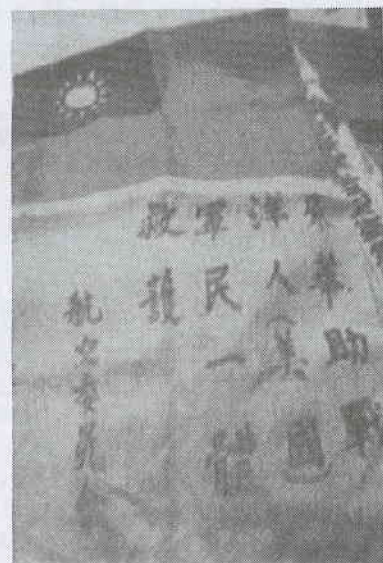 來華助戰
洋人（美國）
軍民一體
救護
航空委員